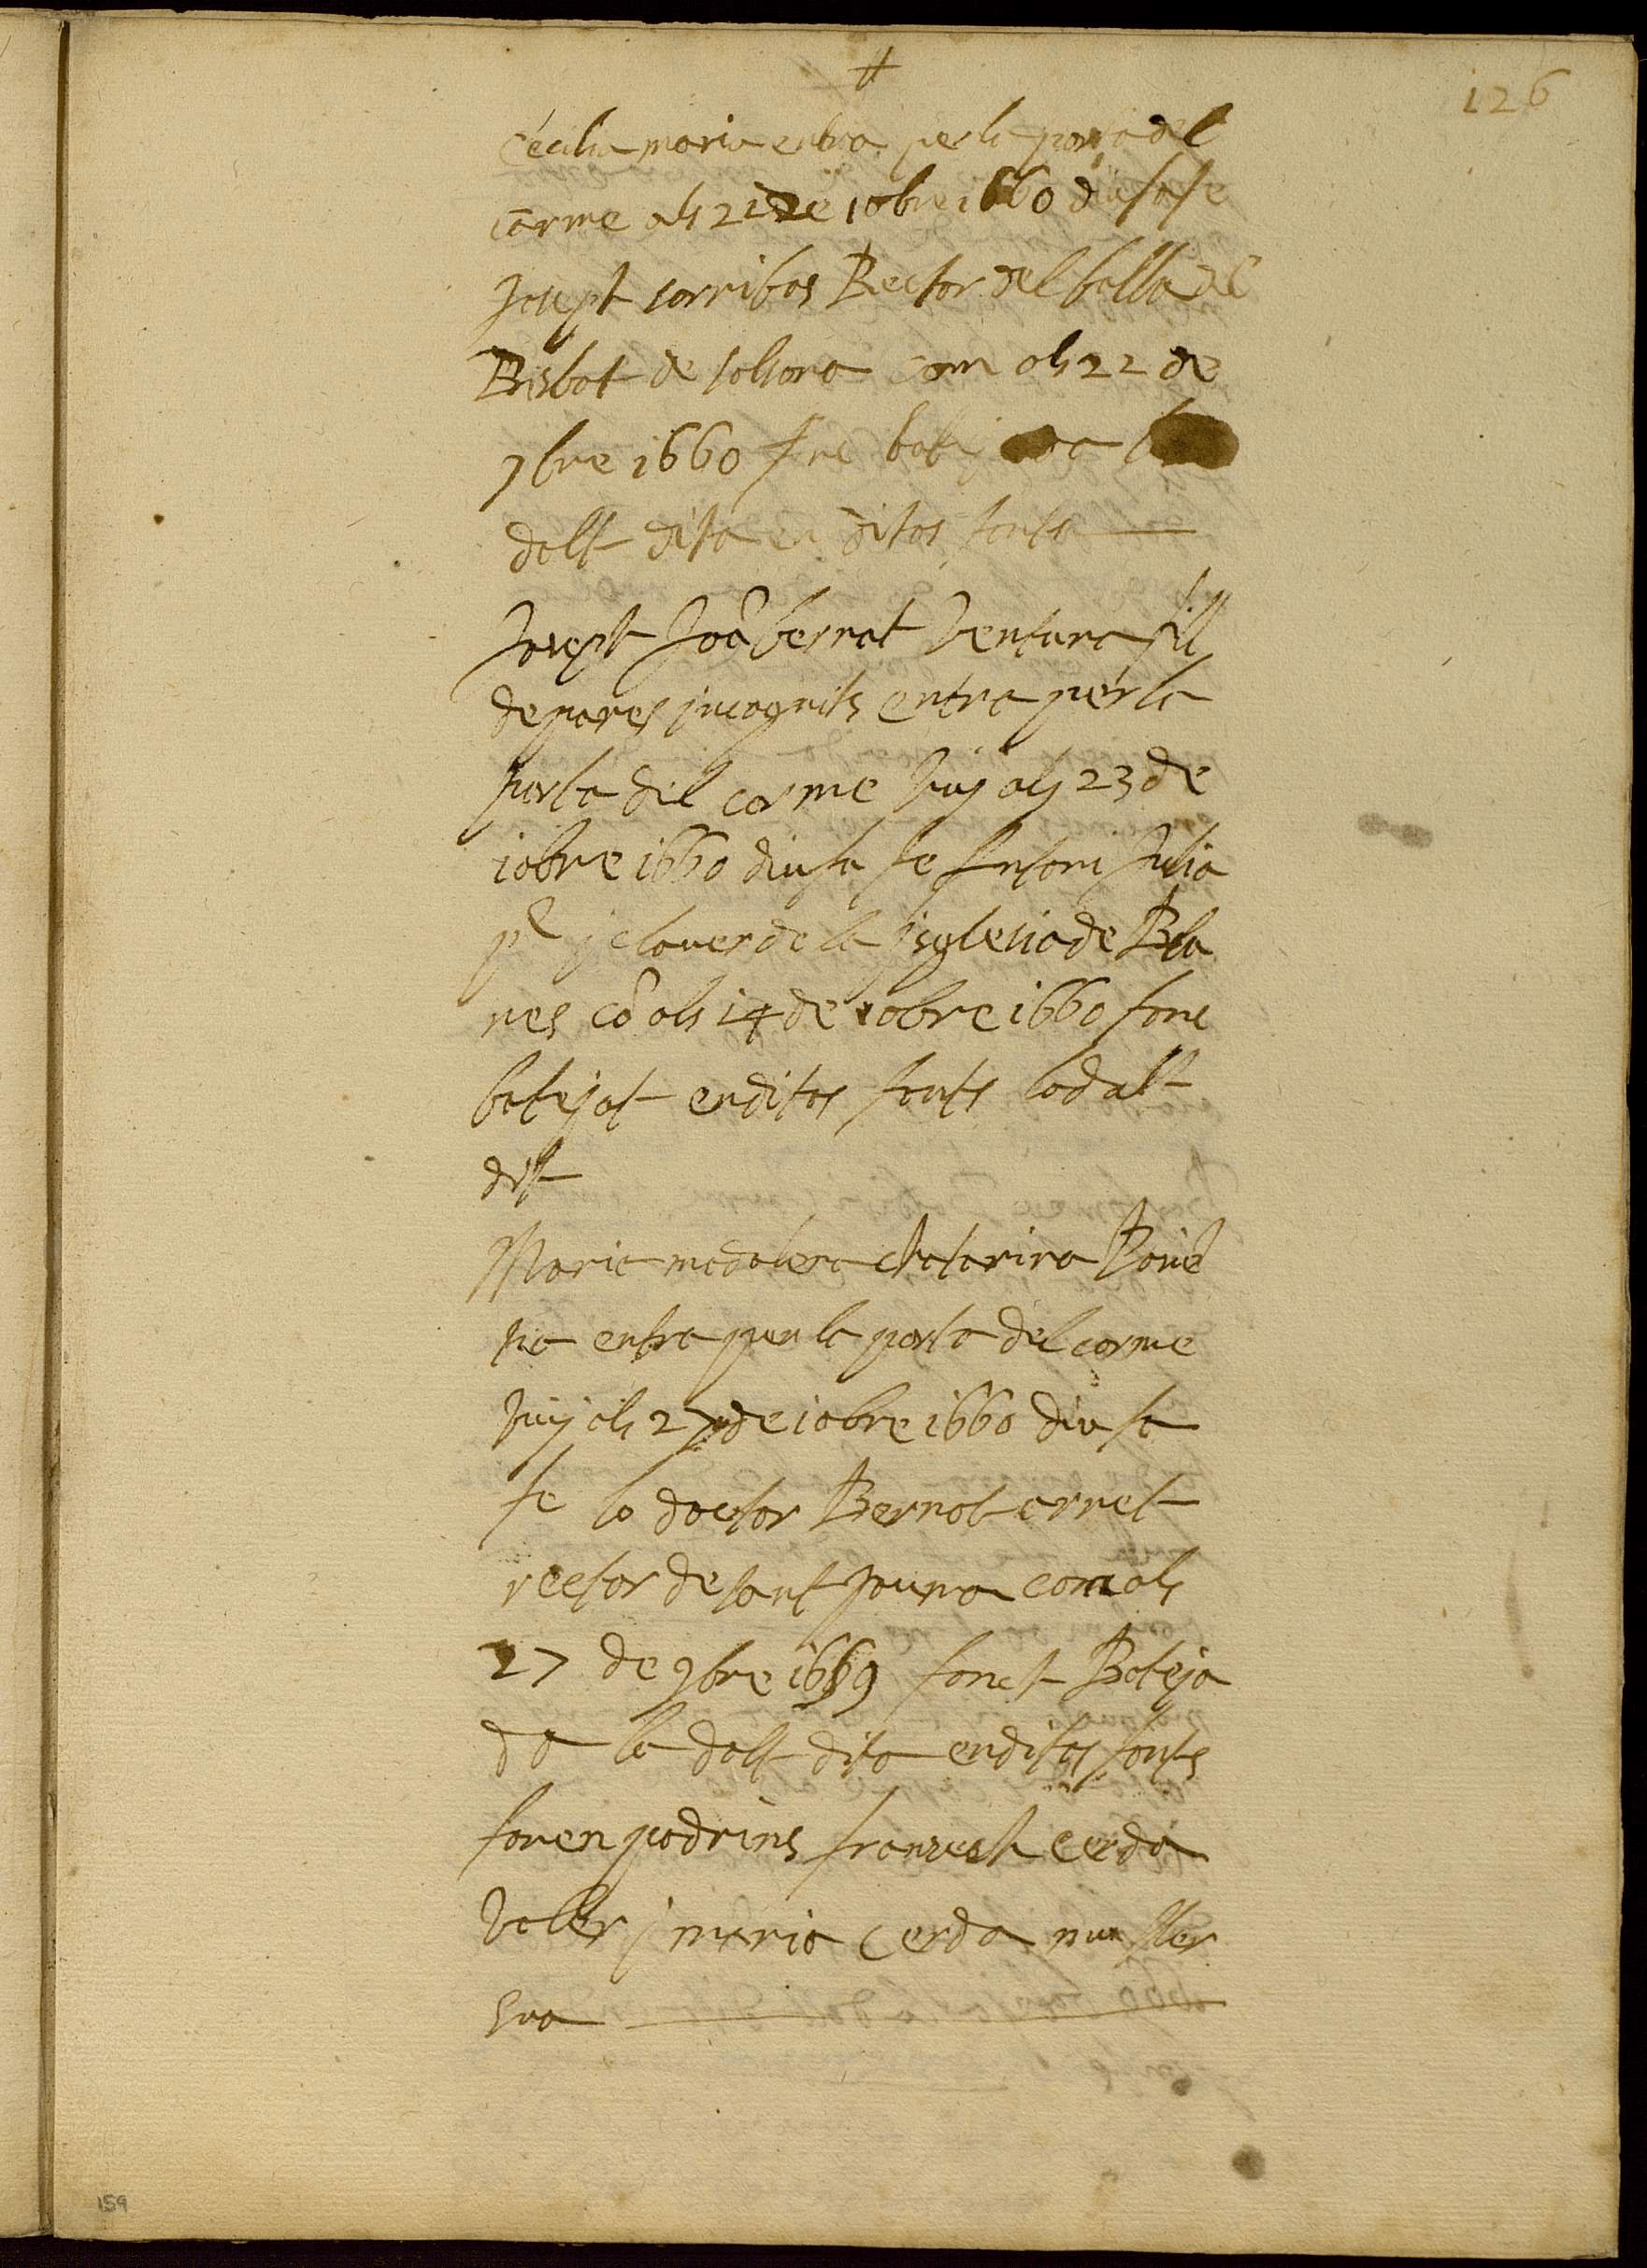 126
Cecilia maria entra per la porta del
carme als 21 de 10bre 1660 diu sa fe
Josept sorribas Rector del bella del
Bisbat de solsona com als 22 de
9bre 1660 fne
dalt dita en ditas fonts
Josept Joā bernat Ventura fill
de pares incognits entra per la
porta del carme vuy als 23 de
10bre 1660 diu sa fe Antoni Julia
pr. y claver de la isglesia de Bla
nes cō als 14 de 10bre 1660 fone
batejat en ditas fonts lo dalt
dit
Maria madalena chatarina Bone
na entra per la porta del carme
vuy als 27 de 10bre 1660 diu sa
fe lo doctor Bernat
rector de sant Jauma com als
27 de 9bre 1669 fonct Bateja
da la dalt dita en ditas fonts
foren padrins fransesch cerda
y maria cerda muller
sua
159